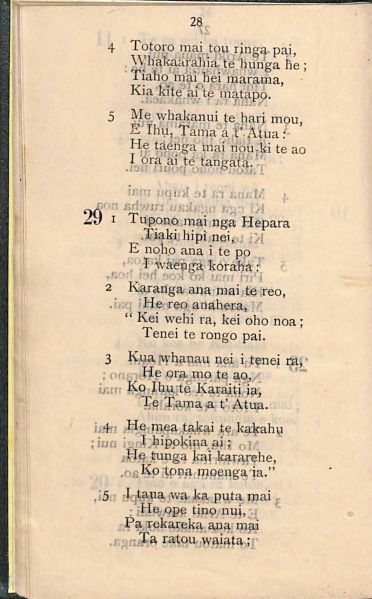 28
4 Totoro mai tou ringa pai,
Whakaarahia te hunga he ;
Tiaho mai hei marama,
Kia kite ai te matapo.
5 Me whakanui te hari mou,
E Ihu, Tama a t' Atua :
He taenga mai nou ki te ao
I ora ai te tangata.
29 1 Tupono mai nga Hepara
Tiaki hipi nei,
E noho ana i te po
I waenga koraha :
2 Karanga ana mai te reo,
He reo anahera,
" Kei wehi ra, kei oho noa ;
Tenei te rongo pai.
3 Kua whanau nei i tenei ra,
He ora mo te ao,
Ko Ihu te Karaiti ia,
Te Tama a t' Atua.
4 He mea takai te kakahu
I hipokina ai :
He tunga kai kararehe,
Ko tona moenga ia."
5 I taua wa ka puta mai
He ope tino nui,
Pa rekareka ana mai
Ta ratou waiata ;